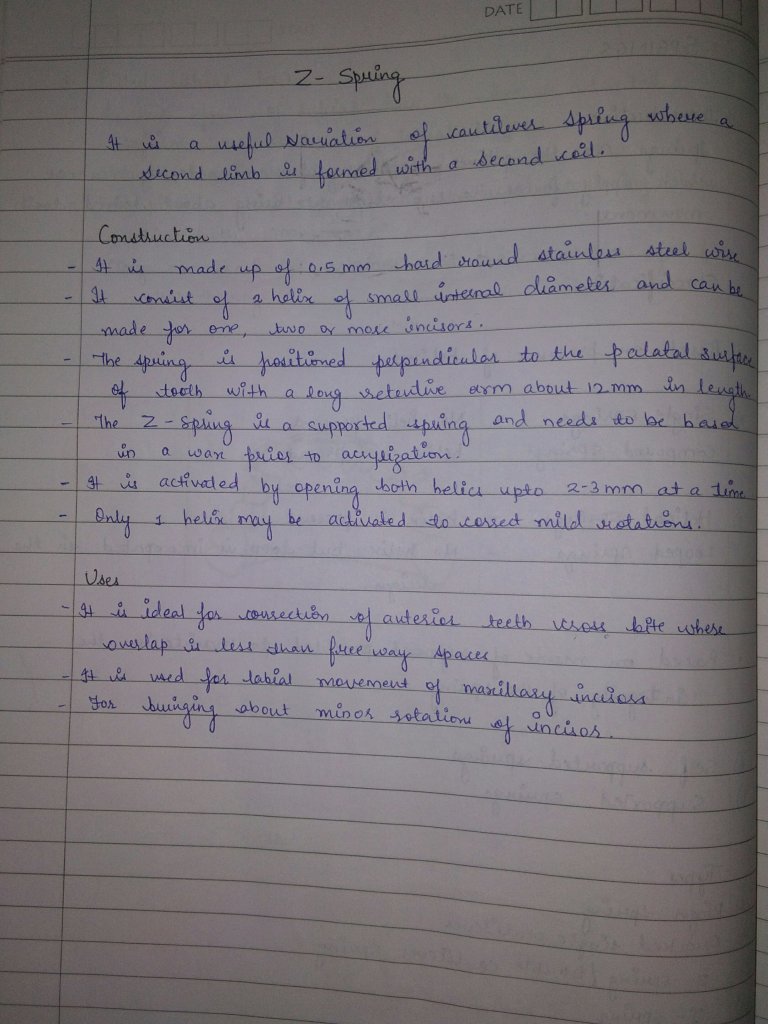 DATE
Z- Spring
It is a useful variation of cantilever spring where a
second limb is formed with a second coil.
Construction
- It is made up of 0.5 mm hard round stainless steel wire
- It consist of 2 helix of small internal diameter and can be
made for one, two or more incisors.
- The spring is positioned perpendicular to the palatal surface
of tooth with a long retentive arm about 12 mm in length
- The Z - Spring is a supported spring and needs to be based
in a wax prior to acrylization.
- It is activated by opening both helics upto 2-3 mm at a time
- Only 1 helix may be activated to correct mild rotations.
Uses
- It is ideal for correction of anterior teeth cross bite where
overlap is less than free way spaces
- It is used for labial movement of maxillary incisors
- For bringing about minor rotations of incisor.